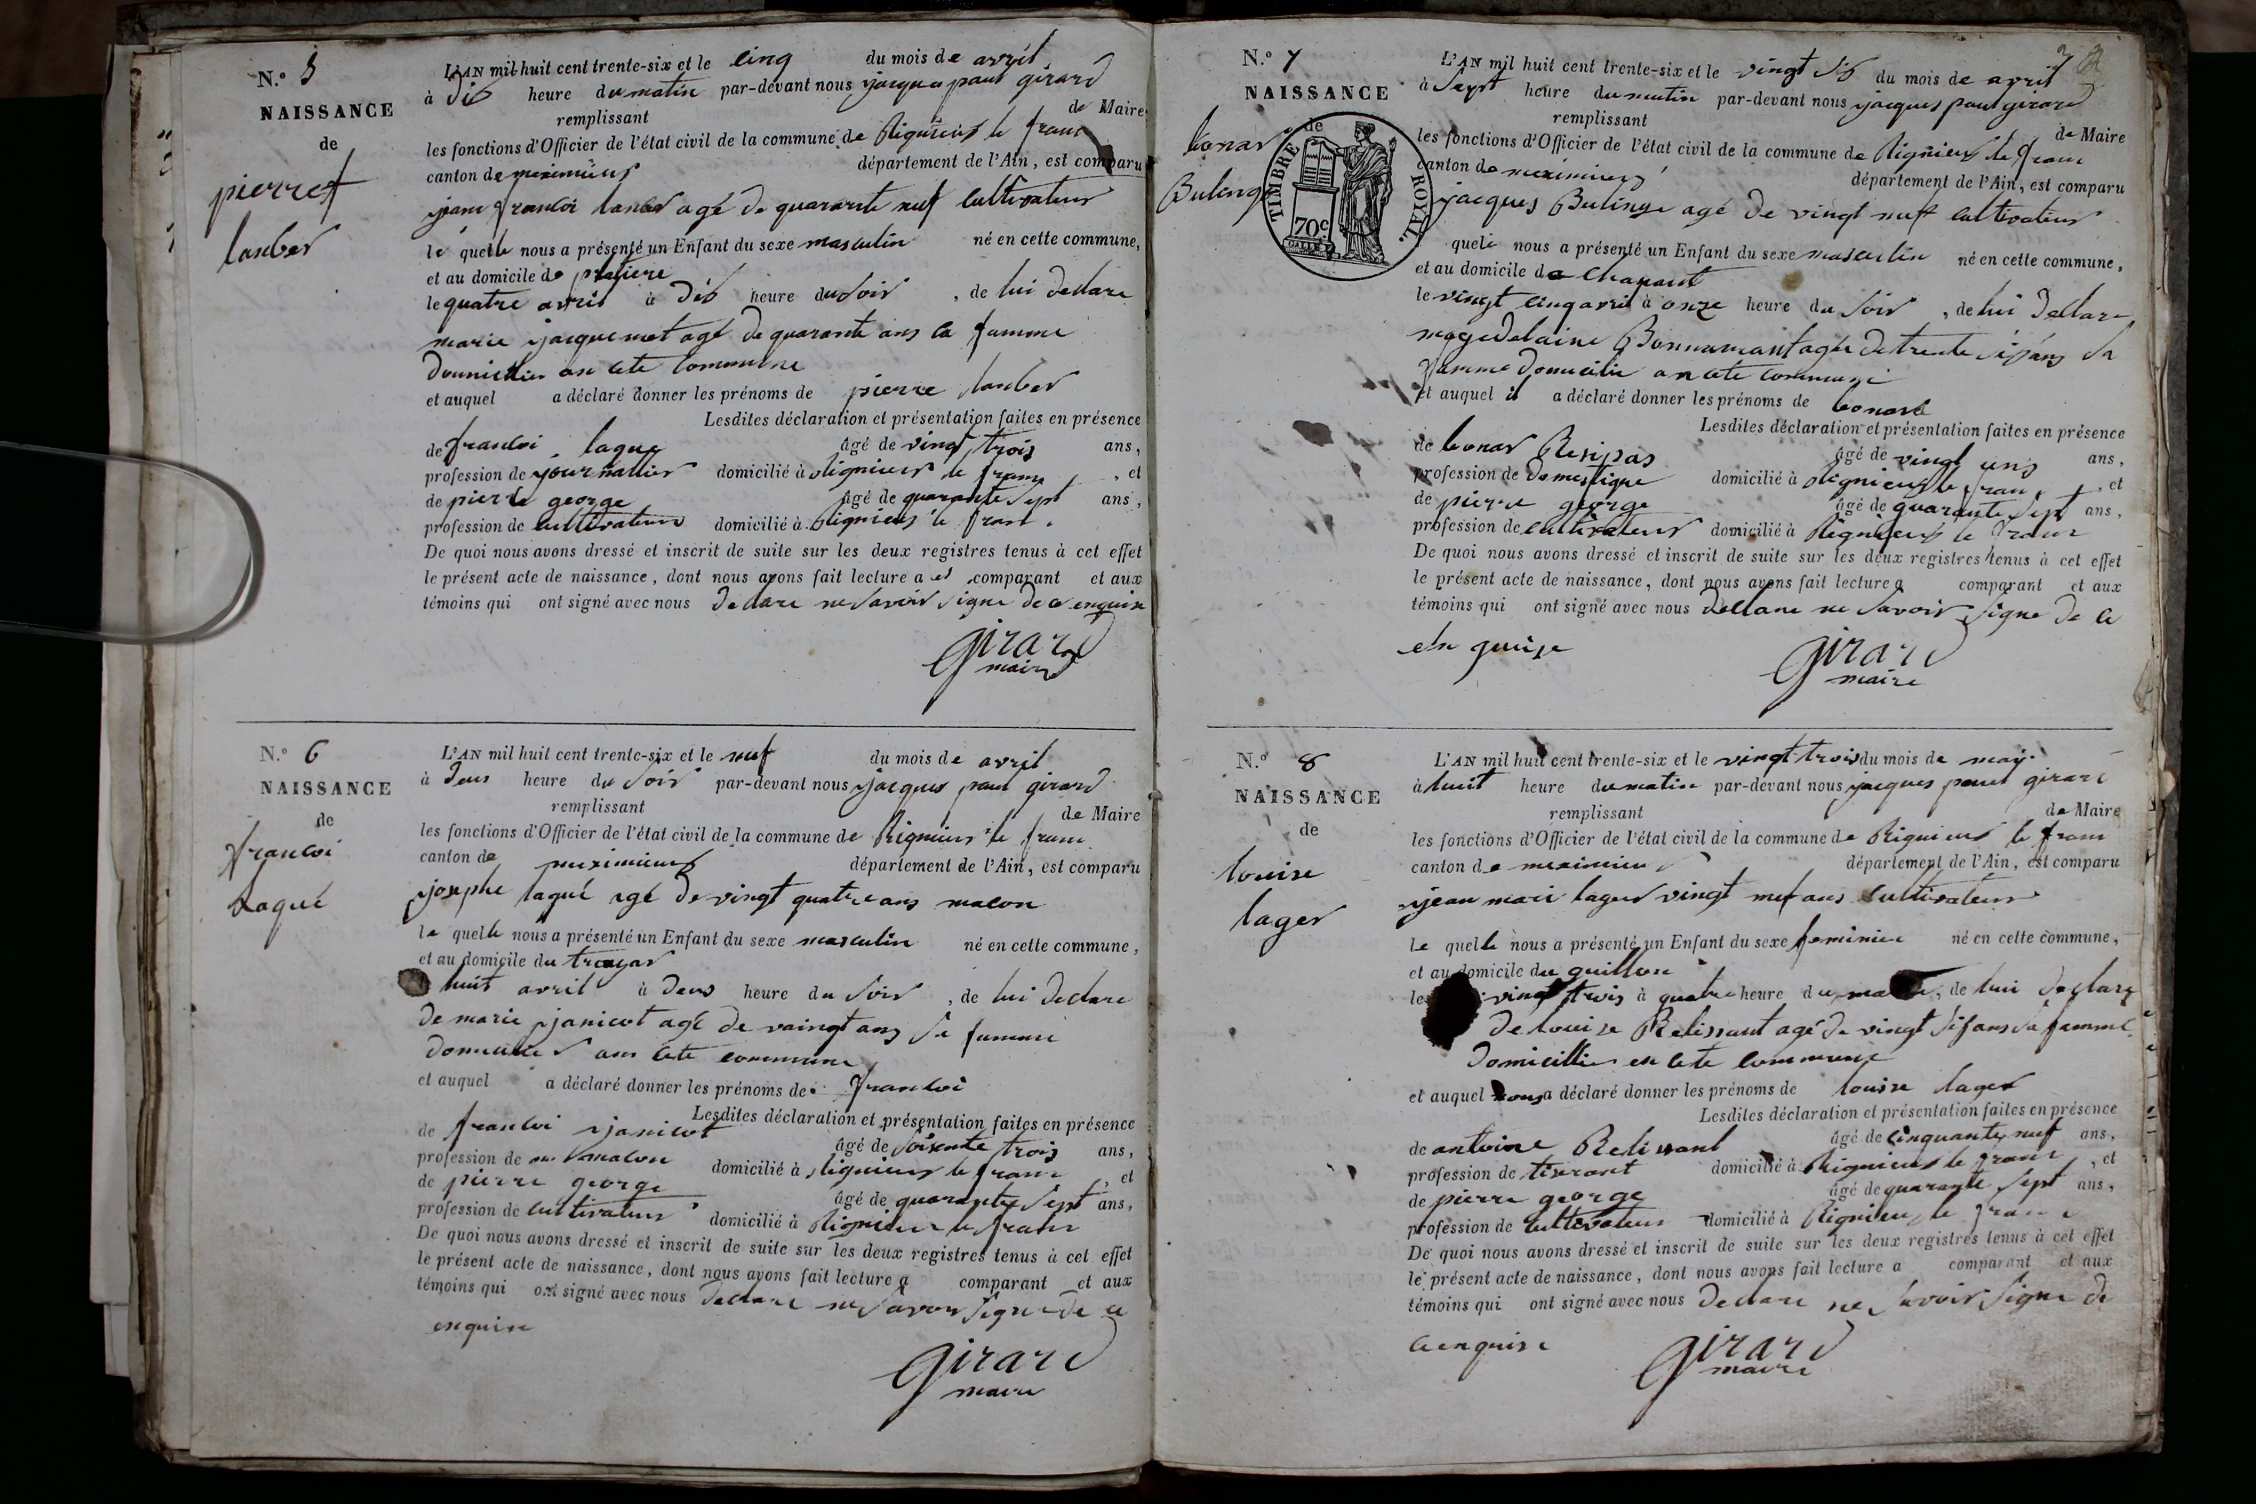 N.o 5
NAISSANCE
de
pierre
lanber
L'AN mil huit cent trente-six et le cinq du mois de avril
à dis heure du matin par-devant nous jacque paul girard
remplissant de Maire
les fonctions d'Officier de l'état civil de la commune de Rignieus le franc
canton de meximieus département de l'Ain, est comparu
jean francoi lanber agé de quarante neuf cultivateur
le quelle nous a présenté un Enfant du sexe masculin né en cette commune,
et au domicile de
le quatre avril à dis heure du soir, de lui declare
marie jacquemet agé de quarante ans la famme
an cete commune
et auquel a déclaré donner les prénoms de pierre lanber
Lesdites déclaration et présentation faites en présence
de francoi laque âgé de vingt trois ans,
profession de journallier domicilié à Rignieus le franc, et
de pierre george âgé de quarante sept ans,
profession de cultivateur domicilié à Rignieus le franc.
De quoi nous avons dressé et inscrit de suite sur les deux registres tenus à cet effet
le présent acte de naissance, dont nous avons fait lecture a comparant et aux
témoins qui ont signé avec nous declare ne savoir signe de ce enquise
girard
maire
N.o 6
NAISSANCE
de
francoi
Laqué
L'AN mil huit cent trente-six et le neuf du mois de avril
à deus heure du soir par-devant nous jacques paul girard
remplissant de Maire
les fonctions d'Officier de l'état civil de la commune de Rignieus le franc
canton de meximieus département de l'Ain, est comparu
josephe laqué agé de vingt quatre ans macon
le quelle nous a présenté un Enfant du sexe masculin né en cette commune,
et au domicile du
huit avril à deus heure du soir, de lui declare
de marie janicot agé de vaingt ans sa famme
an cete commune
et auquel a déclaré donner les prénoms de francoi
Lesdites déclaration et présentation faites en présence
de francoi janicot âgé de soisente trois ans,
profession de macon domicilié à Rignieus le franc, et
de pierre george âgé de quarante sept ans,
profession de cultivateur domicilié à Rignieus le franc
De quoi nous avons dressé et inscrit de suite sur les deux registres tenus à cet effet
le présent acte de naissance, dont nous avons fait lecture a comparant et aux
témoins qui ont signé avec nous declare ne savoir signe de ce
enquise
girard
maire
N.o 7
NAISSANCE
de
lonar
Bulinge
TIMBRE ROYAL.
70c.
L'AN mil huit cent trente-six et le vingt sis du mois de avril
à sept heure du matin par-devant nous jacques paul girard
remplissant de Maire
les fonctions d'Officier de l'état civil de la commune de Rignieus le franc
canton de meximieus département de l'Ain, est comparu
jacques Bulinge agé de vingt neuf cultivateur
quele nous a présenté un Enfant du sexe masculin né en cette commune,
et au domicile de Chapant
le vingt cinq avril à onze heure du soir, de lui declare
magedelaine Bonnamant agée de trente sis ans sa
famme domicilie an cete commune
et auquel il a déclaré donner les prénoms de lonard
Lesdites déclaration et présentation faites en présence
de lonar Resipas âgé de vingt uns ans,
profession de domestique domicilié à Rignieus le fran, et
de pierre george âgé de quarante sept ans,
profession de cultivateur domicilié à Rignieus le franc
De quoi nous avons dressé et inscrit de suite sur les deux registres tenus à cet effet
le présent acte de naissance, dont nous avons fait lecture a comparant et aux
témoins qui ont signé avec nous declare ne savoir signe de ce
en quise
girard
maire
N.o 8
NAISSANCE
de
louise
lager
L'AN mil huit cent trente-six et le vingt trois du mois de may
à huit heure du matin par-devant nous jacques paul girard
remplissant de Maire
les fonctions d'Officier de l'état civil de la commune de Rignieus le franc
canton de meximieus département de l'Ain, est comparu
jean marie lager vingt neuf ans cultivateur
le quelle nous a présenté un Enfant du sexe feminin né en cette commune,
et au domicile du guillon
le vingt trois à quatre heure du, de lui declare
de louise Relissant agé de vingt sis ans sa famme
domicillie en cete commune
et auquel nous a déclaré donner les prénoms de louise lager
Lesdites déclaration et présentation faites en présence
de antoine Relissant âgé de cinquante neuf ans,
profession de tiserant domicilié à Rignieus le franc, et
de pierre george âgé de quarante sept ans,
profession de cultivateur domicilié à Rignieus le franc
De quoi nous avons dressé et inscrit de suite sur les deux registres tenus à cet effet
le présent acte de naissance, dont nous avons fait lecture a comparant et aux
témoins qui ont signé avec nous declare ne savoir signe de
ce enquise
girard
maire